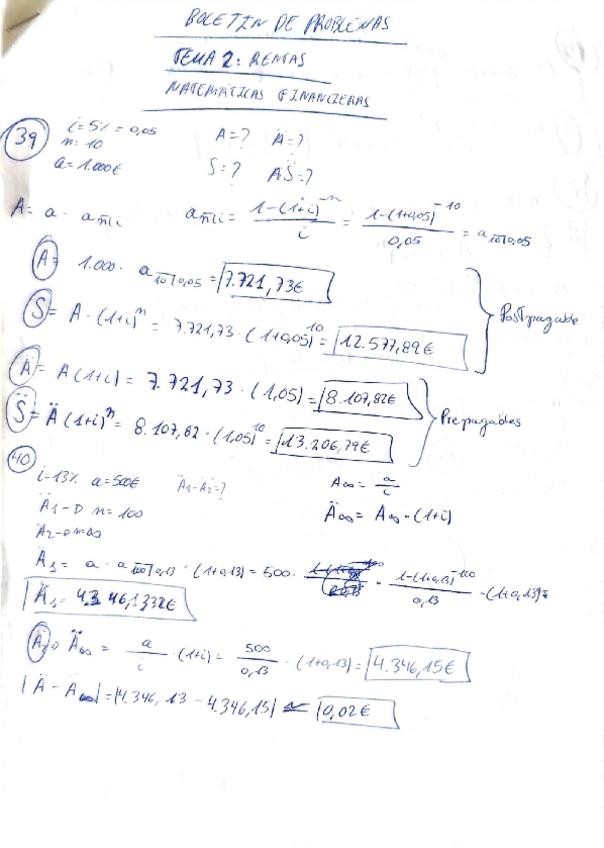 BOLETIN DE PROBLEMAS
TEMA 2: RENTAS
MATEMÁTICAS FINANCIERAS
39 i=5% = 0,05 A=? Ä=?
n=10
a=1.000€ S=? ÄS=?
A= a · an¬i an¬i = 1-(1+i)^-n / i = 1-(1+0,05)^-10 / 0,05 = a10¬0,05
A= 1.000 · a10¬0,05 = 7.721,73€
S= A·(1+i)^n = 7.721,73 · (1+0,05)^10 = 12.577,89€ Postpagable
Ä= A(1+i) = 7.721,73 · (1,05) = 8.107,82€
S̈= Ä(1+i)^n = 8.107,82 · (1,05)^10 = 13.206,79€ Prepagables
40
i-13% a=500€ Ä1-Ä2=? A∞ = a/i
Ä1-D n=100 Ä∞ = A∞ · (1+i)
Ä2-D n=∞
Ä1= a · a100¬0,13 · (1+0,13) = 500 · 1-(1+0,13)^-100 / 0,13 · (1+0,13)=
Ä1= 4.346,1332€
Ä2 Ä∞ = a/i · (1+i) = 500/0,13 · (1+0,13) = 4.346,15€
|Ä - Ä∞| = |4.346,13 - 4.346,15| = 0,02€